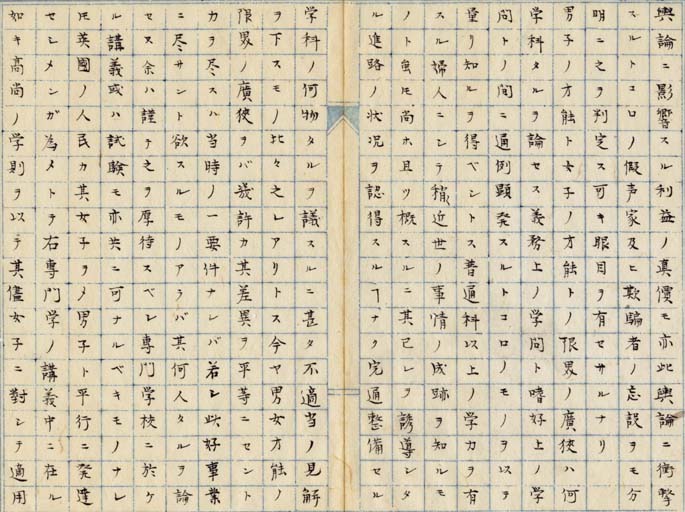 輿論ニ影響スル利益ノ真價モ亦此輿論ニ衝撃
スルトコロノ假声家及ヒ欺騙者ノ忘誤ヲモ分
明ニ之ヲ判定ス可キ眼目ヲ有セサルナリ
男子ノ才能ト女子ノ才能トノ限界ノ廣狹ハ何
学科タルヲ論セス義務上ノ学問ト嗜好上ノ学
問トノ間ニ通例顕発スルトコロノモノヲ以テ
量リ知ルヲ得ベシトス普通科以上ノ学力ヲ有
スル婦人ニシテ稍近世ノ事情ノ成跡ヲ知ルモ
ノト虽モ尚ホ且ツ概スルニ其已レヲ誘導シタ
ル進路ノ状况ヲ認得スルヿナク完通整備セル
学科ノ何物タルヲ議スルニ甚タ不適当ノ見解
ヲ下スモノ比々之レアリトス今ヤ男女才能ノ
限界ノ廣狹ヲバ幾許カ其差異ヲ平等ニセント
カヲ尽スハ当時ノ一要件ナレバ若シ此好事業
ニ尽サント欲スルモノアラバ其何人タルヲ論
セス余ハ謹テ之ヲ厚待スベシ専門学校ニ於ケ
ル講義或ハ試験モ亦共ニ可ナルベキモノナレ
𪜈英國ノ人民カ其女子ヲメ男子ト平行ニ発達
セシメンガ為メトテ右専門学ノ講義中ニ在ル
如キ高尚ノ学則ヲ以テ其儘女子ニ對シテ適用